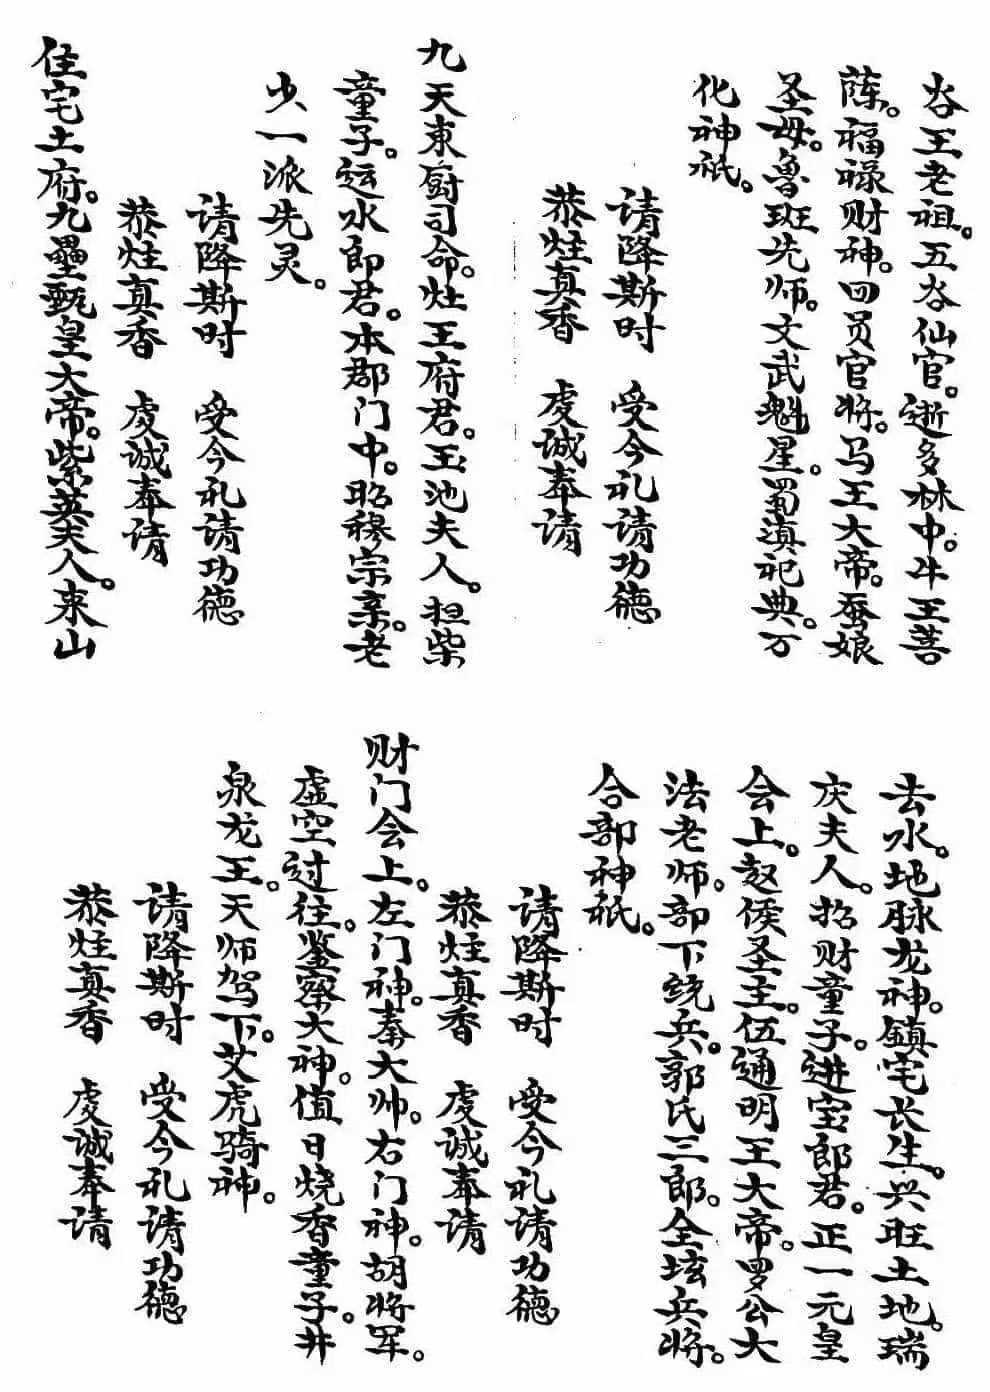 谷王老祖。五谷仙官。逝多林中。牛王菩
蕯。福禄财神。四员官将。马王大帝。蚕娘
圣母。魯班先师。文武魁星。蜀滇祀典。万
化神祇。
请降斯时 受今礼请功德
恭炷真香 虔诚奉请
九天東厨司命。灶王府君。玉池夫人。担柴
童子。运水郎君。本郡门中。昭穆宗亲。老
少一派先灵。
请降斯时 受今礼请功德
恭炷真香 虔诚奉请
住宅土府。九壘甄皇大帝。紫英夫人。来山
去水。地脉龙神。鎮宅长生。兴旺土地。瑞
庆夫人。招财童子。进宝郎君。正一元皇
会上。赵侯圣主。伍通明王大帝。罗公大
法老师。部下统兵。郭氏三郎。全坛兵将。
合部神祇。
请降斯时 受今礼请功德
恭炷真香 虔诚奉请
财门会上。左门神。秦大帅。右门神。胡将军。
虚空过往。鉴察大神。值日烧香童子。井
泉龙王。天师驾下。艾虎骑神。
请降斯时 受今礼请功德
恭炷真香 虔诚奉请